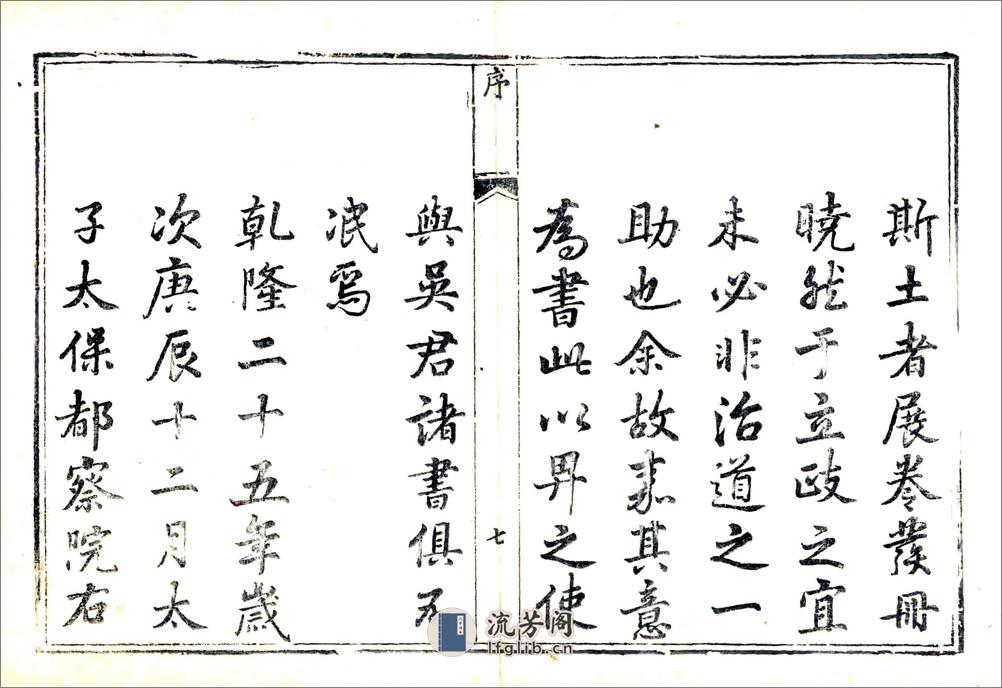 斯土者展卷發冊
曉然于立政之宜
未必非治道之一
助也余故嘉其意
為書此以畀之使
序
七
與吳君諸書俱不
泯焉
乾隆二十五年歲
次庚辰十二月太
子太保都察院右
流芳阁
lfglib.cn